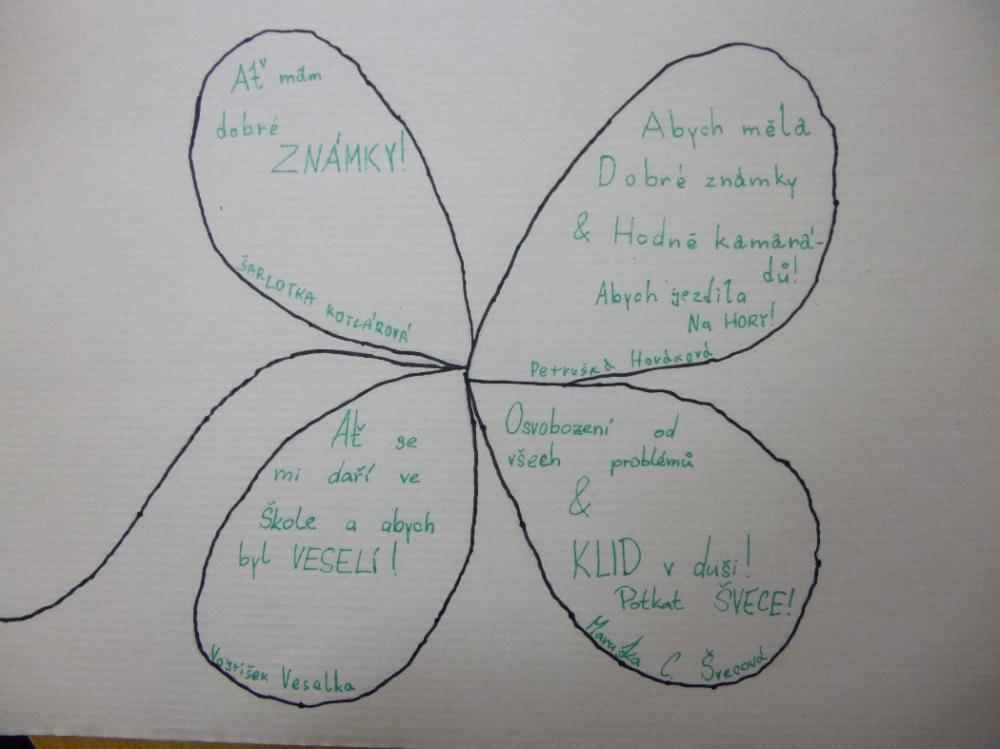 Ať mám
dobré
ZNÁMKY!
ŠARLOTKA KOTLÁROVÁ
Abych měla
Dobré známky
& Hodně kamará-
dů!
Abych jezdila
Na HORY!
Petruška Horáková
Ať se
mi daří ve
Škole a abych
byl VESELÍ!
Vojtíšek Veselka
Osvobození od
všech problémů
&
KLID v duši!
Potkat ŠVECE!
Maruška C. Švecová